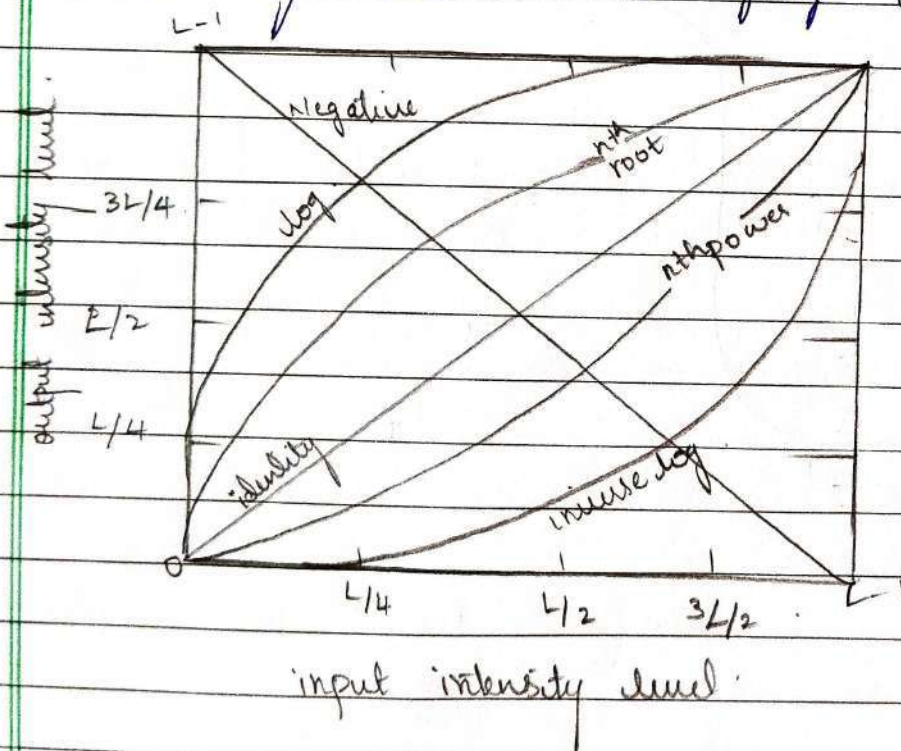 L-1
output intensity level.
3L/4
L/2
L/4
0
Negative
log
nth
root
identity
nth power
inverse log
L/4
L/2
3L/2
L
input intensity level.